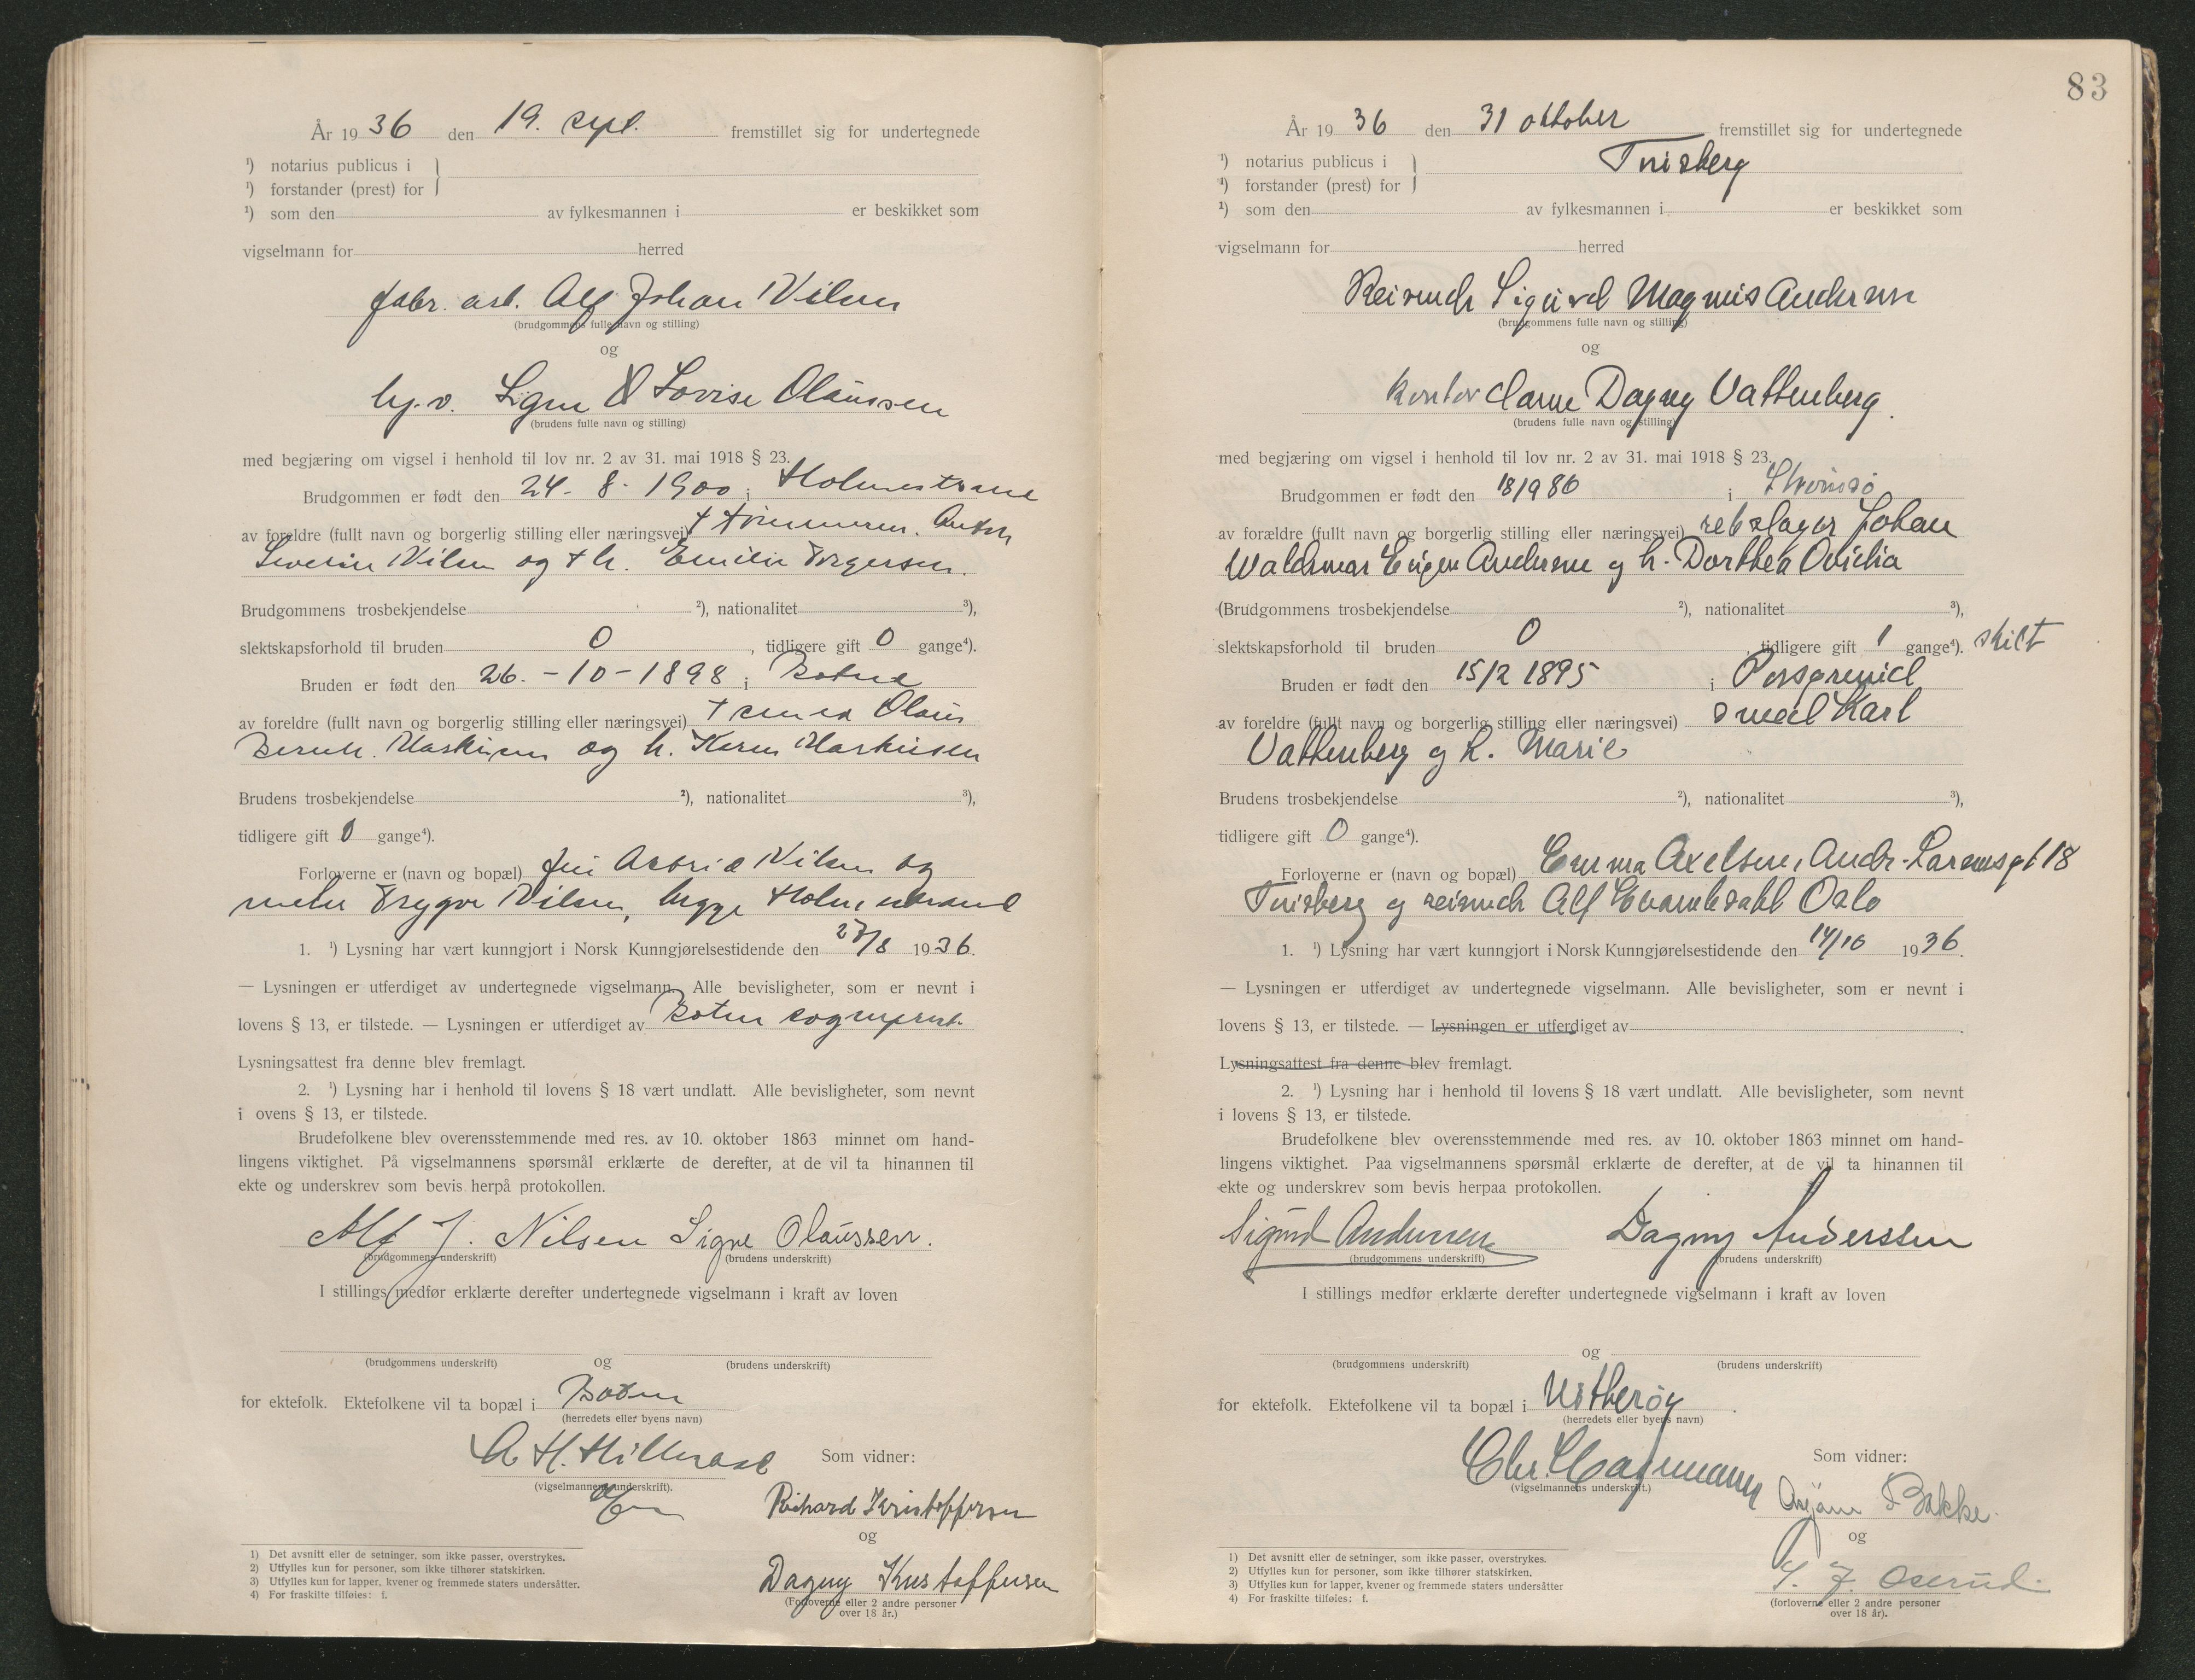 År 19 36 den 19. sept. fremstillet sig for undertegnede
¹) notarius publicus i
¹) forstander (prest) for
¹) som den av fylkesmannen i er beskikket som
vigselmann for herred
fabr. arb. Alf Johan Nilsen
(brudgommens fulle navn og stilling)
og
Signe Lovise Olaussen
(brudens fulle navn og stilling)
med begjæring om vigsel i henhold til lov nr. 2 av 31. mai 1918 § 23.
Brudgommen er født den 24 - 8 - 1900 i Holmestrand
av foreldre (fullt navn og borgerlig stilling eller næringsvei) † tømmerm. Anton
Severin Nilsen og † h. Emilie Torgersen.
Brudgommens trosbekjendelse ²), nationalitet ³),
slektskapsforhold til bruden 0, tidligere gift 0 gange⁴).
Bruden er født den 26. - 10 - 1898 i Botne
av foreldre (fullt navn og borgerlig stilling eller næringsvei) † Olaus
Bernh. Markussen og h. Karen Markussen
Brudens trosbekjendelse ²), nationalitet ³),
tidligere gift 0 gange⁴).
Forloverne er (navn og bopæl) Astrid Nilsen og
Trygve Nilsen, begge Holmestrand
1. ¹) Lysning har vært kunngjort i Norsk Kunngjørelsestidende den 1936.
— Lysningen er utferdiget av undertegnede vigselmann. Alle bevisligheter, som er nevnt i
lovens § 13, er tilstede. — Lysningen er utferdiget av Botne sogneprest.
Lysningsattest fra denne blev fremlagt.
2. ¹) Lysning har i henhold til lovens § 18 vært undlatt. Alle bevisligheter, som nevnt
i ovens § 13, er tilstede.
Brudefolkene blev overensstemmende med res. av 10. oktober 1863 minnet om hand-
lingens viktighet. På vigselmannens spørsmål erklærte de derefter, at de vil ta hinannen til
ekte og underskrev som bevis herpå protokollen.
Alf J. Nilsen Signe Olaussen.
(brudgommens underskrift) (brudens underskrift)
I stillings medfør erklærte derefter undertegnede vigselmann i kraft av loven
og
(brudgommens underskrift) (brudens underskrift)
for ektefolk. Ektefolkene vil ta bopæl i Botne
(herredets eller byens navn)
A H. Hillestad Som vidner:
(vigselmannens underskrift).
Richard Kristoffersen
og
Dagny Kristoffersen
(Forloverne eller 2 andre personer
over 18 år.)
1) Det avsnitt eller de setninger, som ikke passer, overstrykes.
2) Utfylles kun for personer, som ikke tilhører statskirken.
3) Utfylles kun for lapper, kvener og fremmede staters undersåtter.
4) For fraskilte tilføies: f.
83
År 19 36 den 31 oktober fremstillet sig for undertegnede
¹) notarius publicus i Tønsberg
¹) forstander (prest) for
¹) som den av fylkesmannen i er beskikket som
vigselmann for herred
Sigurd Magnus Andersen
(brudgommens fulle navn og stilling)
og
kontordame Dagny Vattenberg.
(brudens fulle navn og stilling)
med begjæring om vigsel i henhold til lov nr. 2 av 31. mai 1918 § 23.
Brudgommen er født den i Strømsø
av forældre (fullt navn og borgerlig stilling eller næringsvei) rebslager Johan
Waldemar Eugen Andersen og h. Dorthea
(Brudgommens trosbekjendelse ²), nationalitet ³),
slektskapsforhold til bruden 0, tidligere gift 1 gange⁴). skilt
Bruden er født den 15/2 1895 i Porsgrund
av foreldre (fullt navn og borgerlig stilling eller næringsvei) smed Karl
Vattenberg og h. Marie
Brudens trosbekjendelse ²), nationalitet ³),
tidligere gift 0 gange⁴).
Forloverne er (navn og bopæl) Emma Axelsen, Andr. Larsensgt 18
Tønsberg og Alf Oslo
1. ¹) Lysning har vært kunngjort i Norsk Kunngjørelsestidende den 14/10 1936.
— Lysningen er utferdiget av undertegnede vigselmann. Alle bevisligheter, som er nevnt i
lovens § 13, er tilstede. — Lysningen er utferdiget av
Lysningsattest fra denne blev fremlagt.
2. ¹) Lysning har i henhold til lovens § 18 vært undlatt. Alle bevisligheter, som nevnt
i lovens § 13, er tilstede.
Brudefolkene blev overensstemmende med res. av 10. oktober 1863 minnet om hand-
lingens viktighet. Paa vigselmannens spørsmål erklærte de derefter, at de vil ta hinannen til
ekte og underskrev som bevis herpaa protokollen.
Sigurd Anderssen Dagny Anderssen
(brudgommens underskrift) (brudens underskrift)
I stillings medfør erklærte derefter undertegnede vigselmann i kraft av loven
og
(brudgommens underskrift) (brudens underskrift)
for ektefolk. Ektefolkene vil ta bopæl i Nøtterøy.
(herredets eller byens navn)
Chr. Hagemann Som vidner:
(vigselmannens underskrift.)
Bakke.
og
Oserud.
(forloverne eller 2 andre personer
over 18 år).
1) Det avsnitt eller de setninger, som ikke passer, overstrykes.
2) Utfylles kun for personer, som ikke tilhører statskirken.
3) Utfylles kun for lapper, kvener og fremmede staters undersåtter
4) For fraskilte tilføies: f.